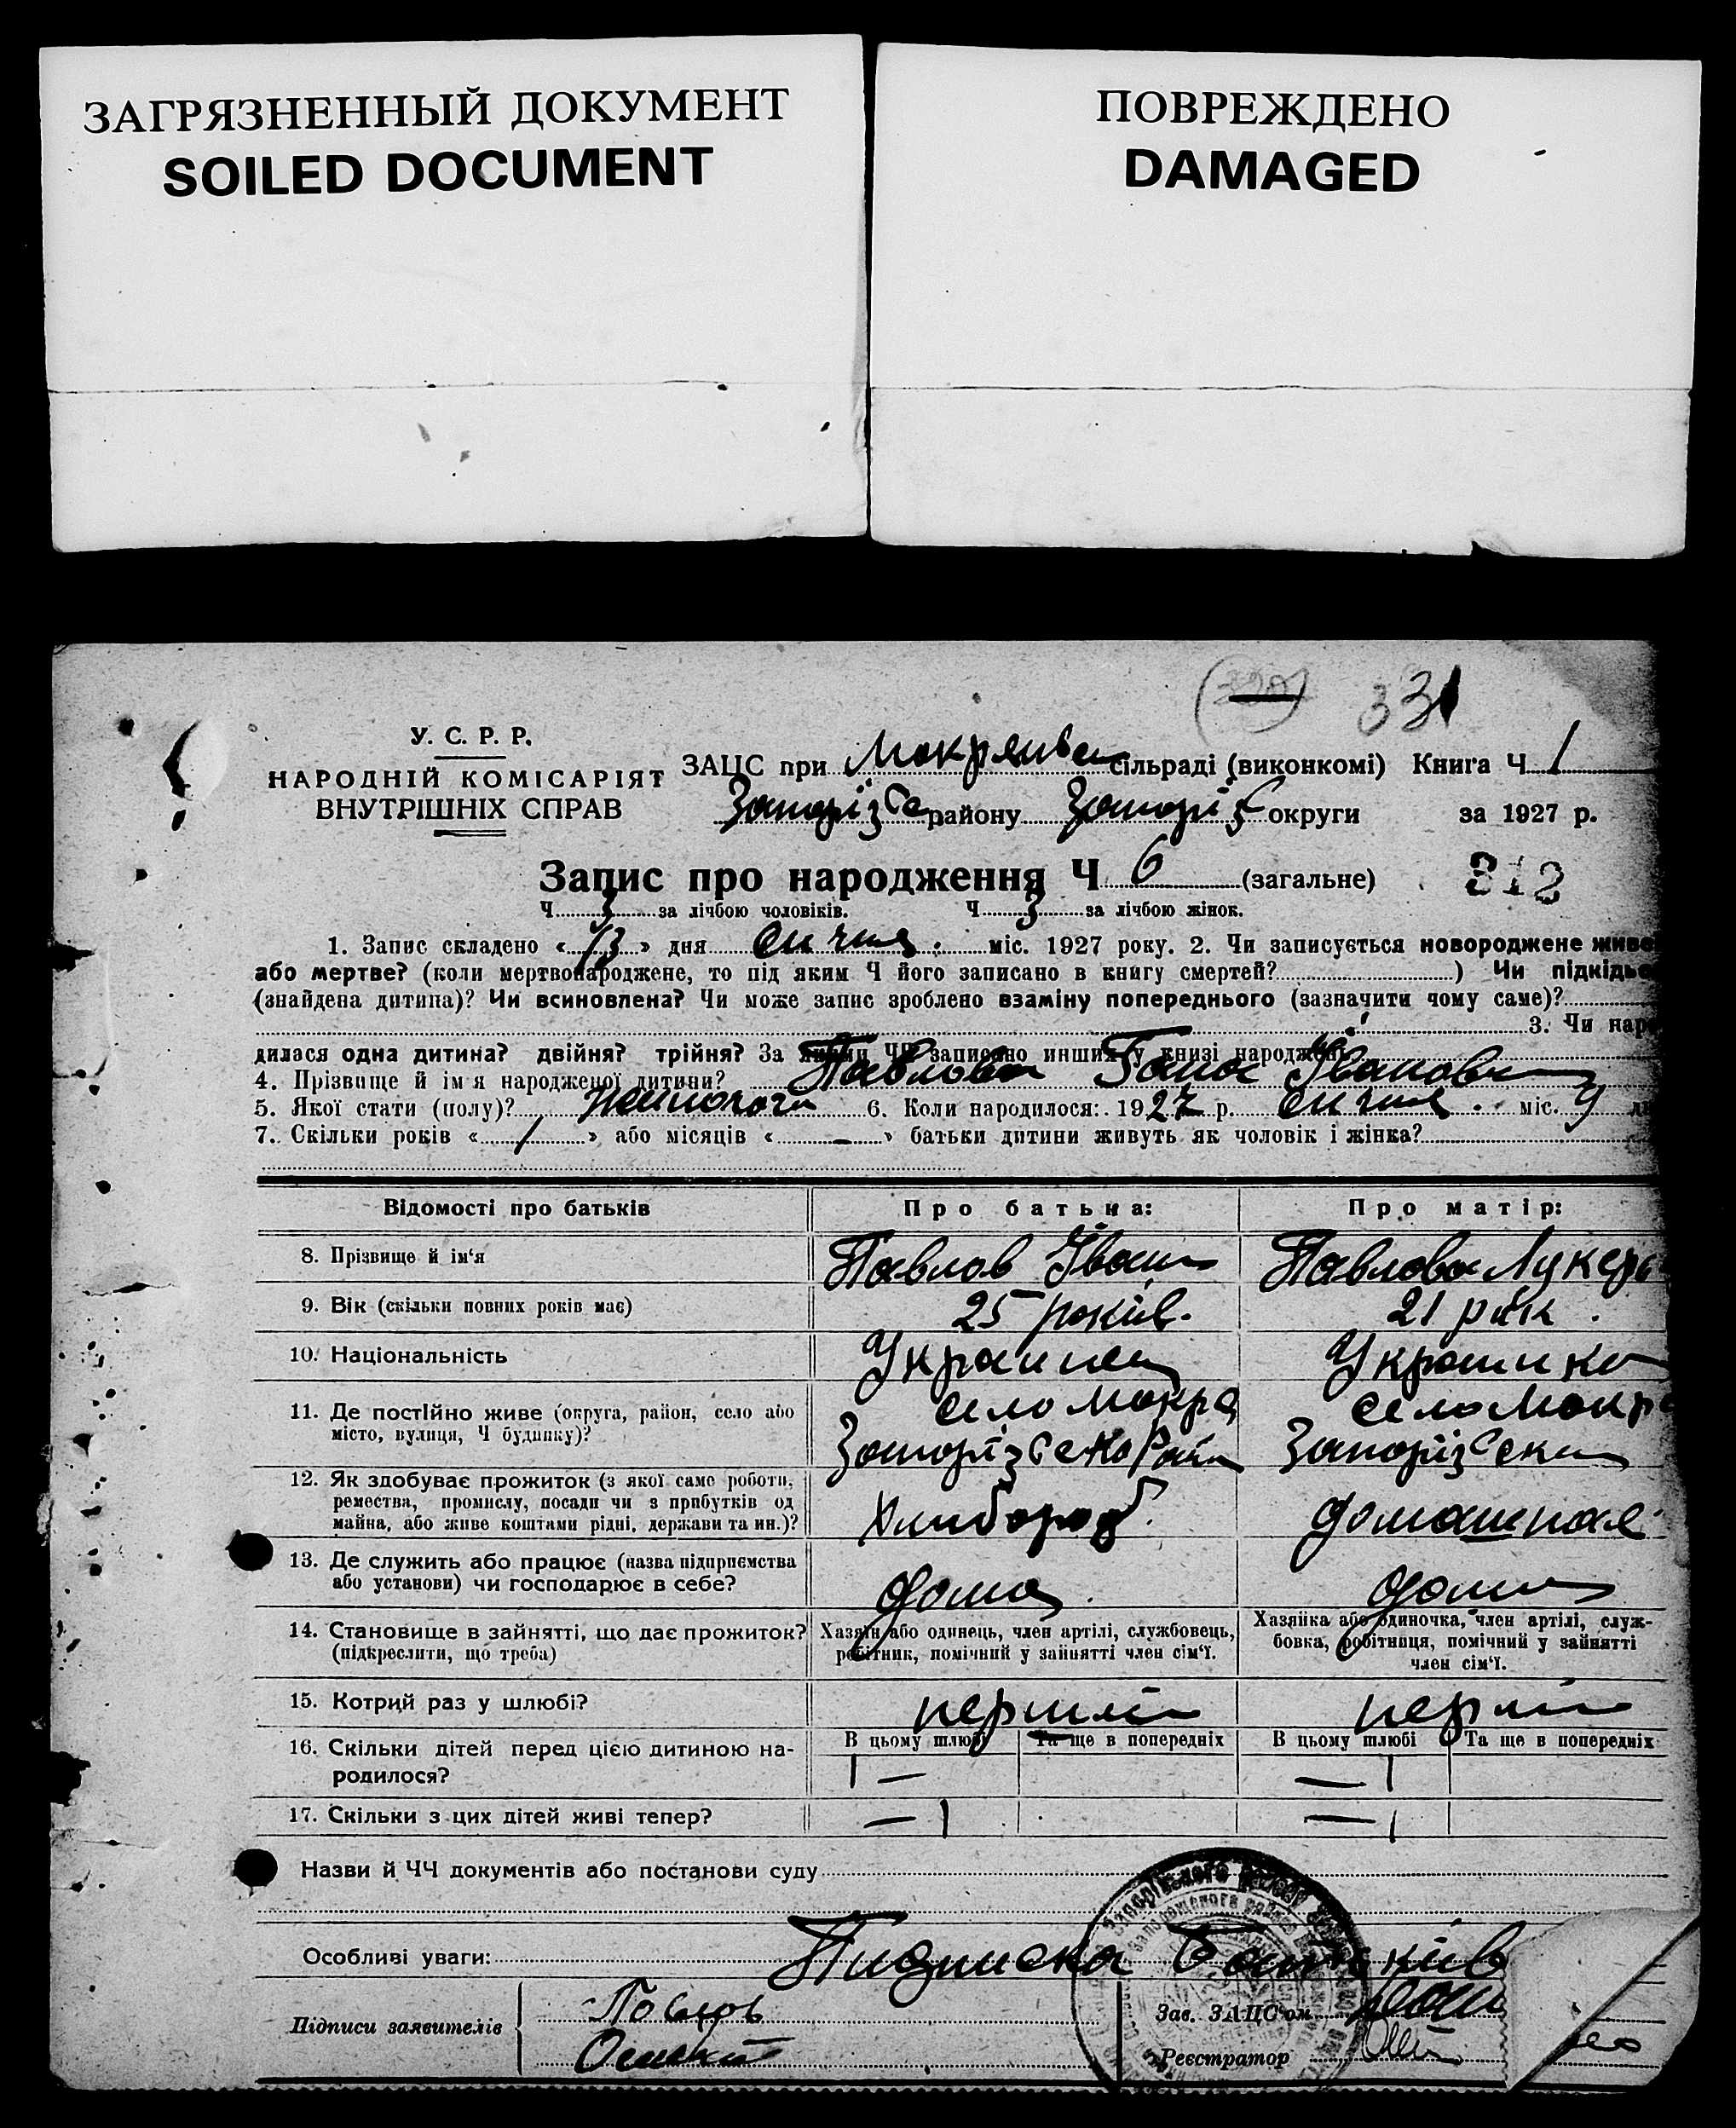 ЗАГРЯЗНЕННЫЙ ДОКУМЕНТ
SOILED DOCUMENT
ПОВРЕЖДЕНО
DAMAGED
331
У. С. Р. Р.
НАРОДНІЙ КОМІСАРІЯТ
ВНУТРІШНІХ СПРАВ
ЗАЦС при Мокрянсь сільраді (виконкомі) Книга Ч 1
Запоріз району Запоріз округи за 1927 р.
Запис про народження Ч 6 (загальне) 312
Ч 3 за лічбою чоловіків. Ч 3 за лічбою жінок.
1. Запис складено «13» дня сичня міс. 1927 року. 2. Чи записується новороджене живе
або мертве? (коли мертвонароджене, то під яким Ч його записано в книгу смертей? ) Чи підкідьо
(знайдена дитина)? Чи всиновлена? Чи може запис зроблено взаміну попереднього (зазначити чому саме)?
3. Чи наро
дилася одна дитина? двійня? трійня? За якими ЧЧ записано инших у книзі народжень
4. Прізвище й ім'я народженої дитини? Павлова Гана Іванова
5. Якої стати (полу)? 6. Коли народилося: 1927 р. сичня міс. 9 дн
7. Скільки років «1» або місяців «—» батьки дитини живуть як чоловік і жінка?
Відомості про батьків Про батька: Про матір:
8. Прізвище й ім'я Павлов Іван Павлова Лукерь
9. Вік (скільки повних років має) 25 років. 21 рік.
10. Національність Украинец Украинка
11. Де постійно живе (округа, район, село або
місто, вулиця, Ч будинку)?
село Мокра село Мокра
12. Як здобуває прожиток (з якої саме роботи,
ремества, промислу, посади чи з прибутків од
майна, або живе коштами рідні, держави та ин.)?
Хлибороб. домашная
13. Де служить або працює (назва підприємства
або установи) чи господарює в себе?
дома дома
14. Становище в зайнятті, що дає прожиток?
(підкреслити, що треба)
Хазяїн або одинець, член артілі, службовець,
робітник, помічний у зайнятті член сім'ї.
Хазяйка або одиночка, член артілі, служ-
бовка, робітниця, помічний у зайнятті
член сім'ї.
15. Котрий раз у шлюбі?
В цьому шлюбі Та ще в попередніх В цьому шлюбі Та ще в попередніх
16. Скільки дітей перед цією дитиною на-
родилося?
1 — — 1
17. Скільки з цих дітей живі тепер? — 1 — 1
Назви й ЧЧ документів або постанови суду
Особливі уваги: Пидписка Батькив
Підписи заявителів
Зав. ЗАЦС'ом
Реєстратор